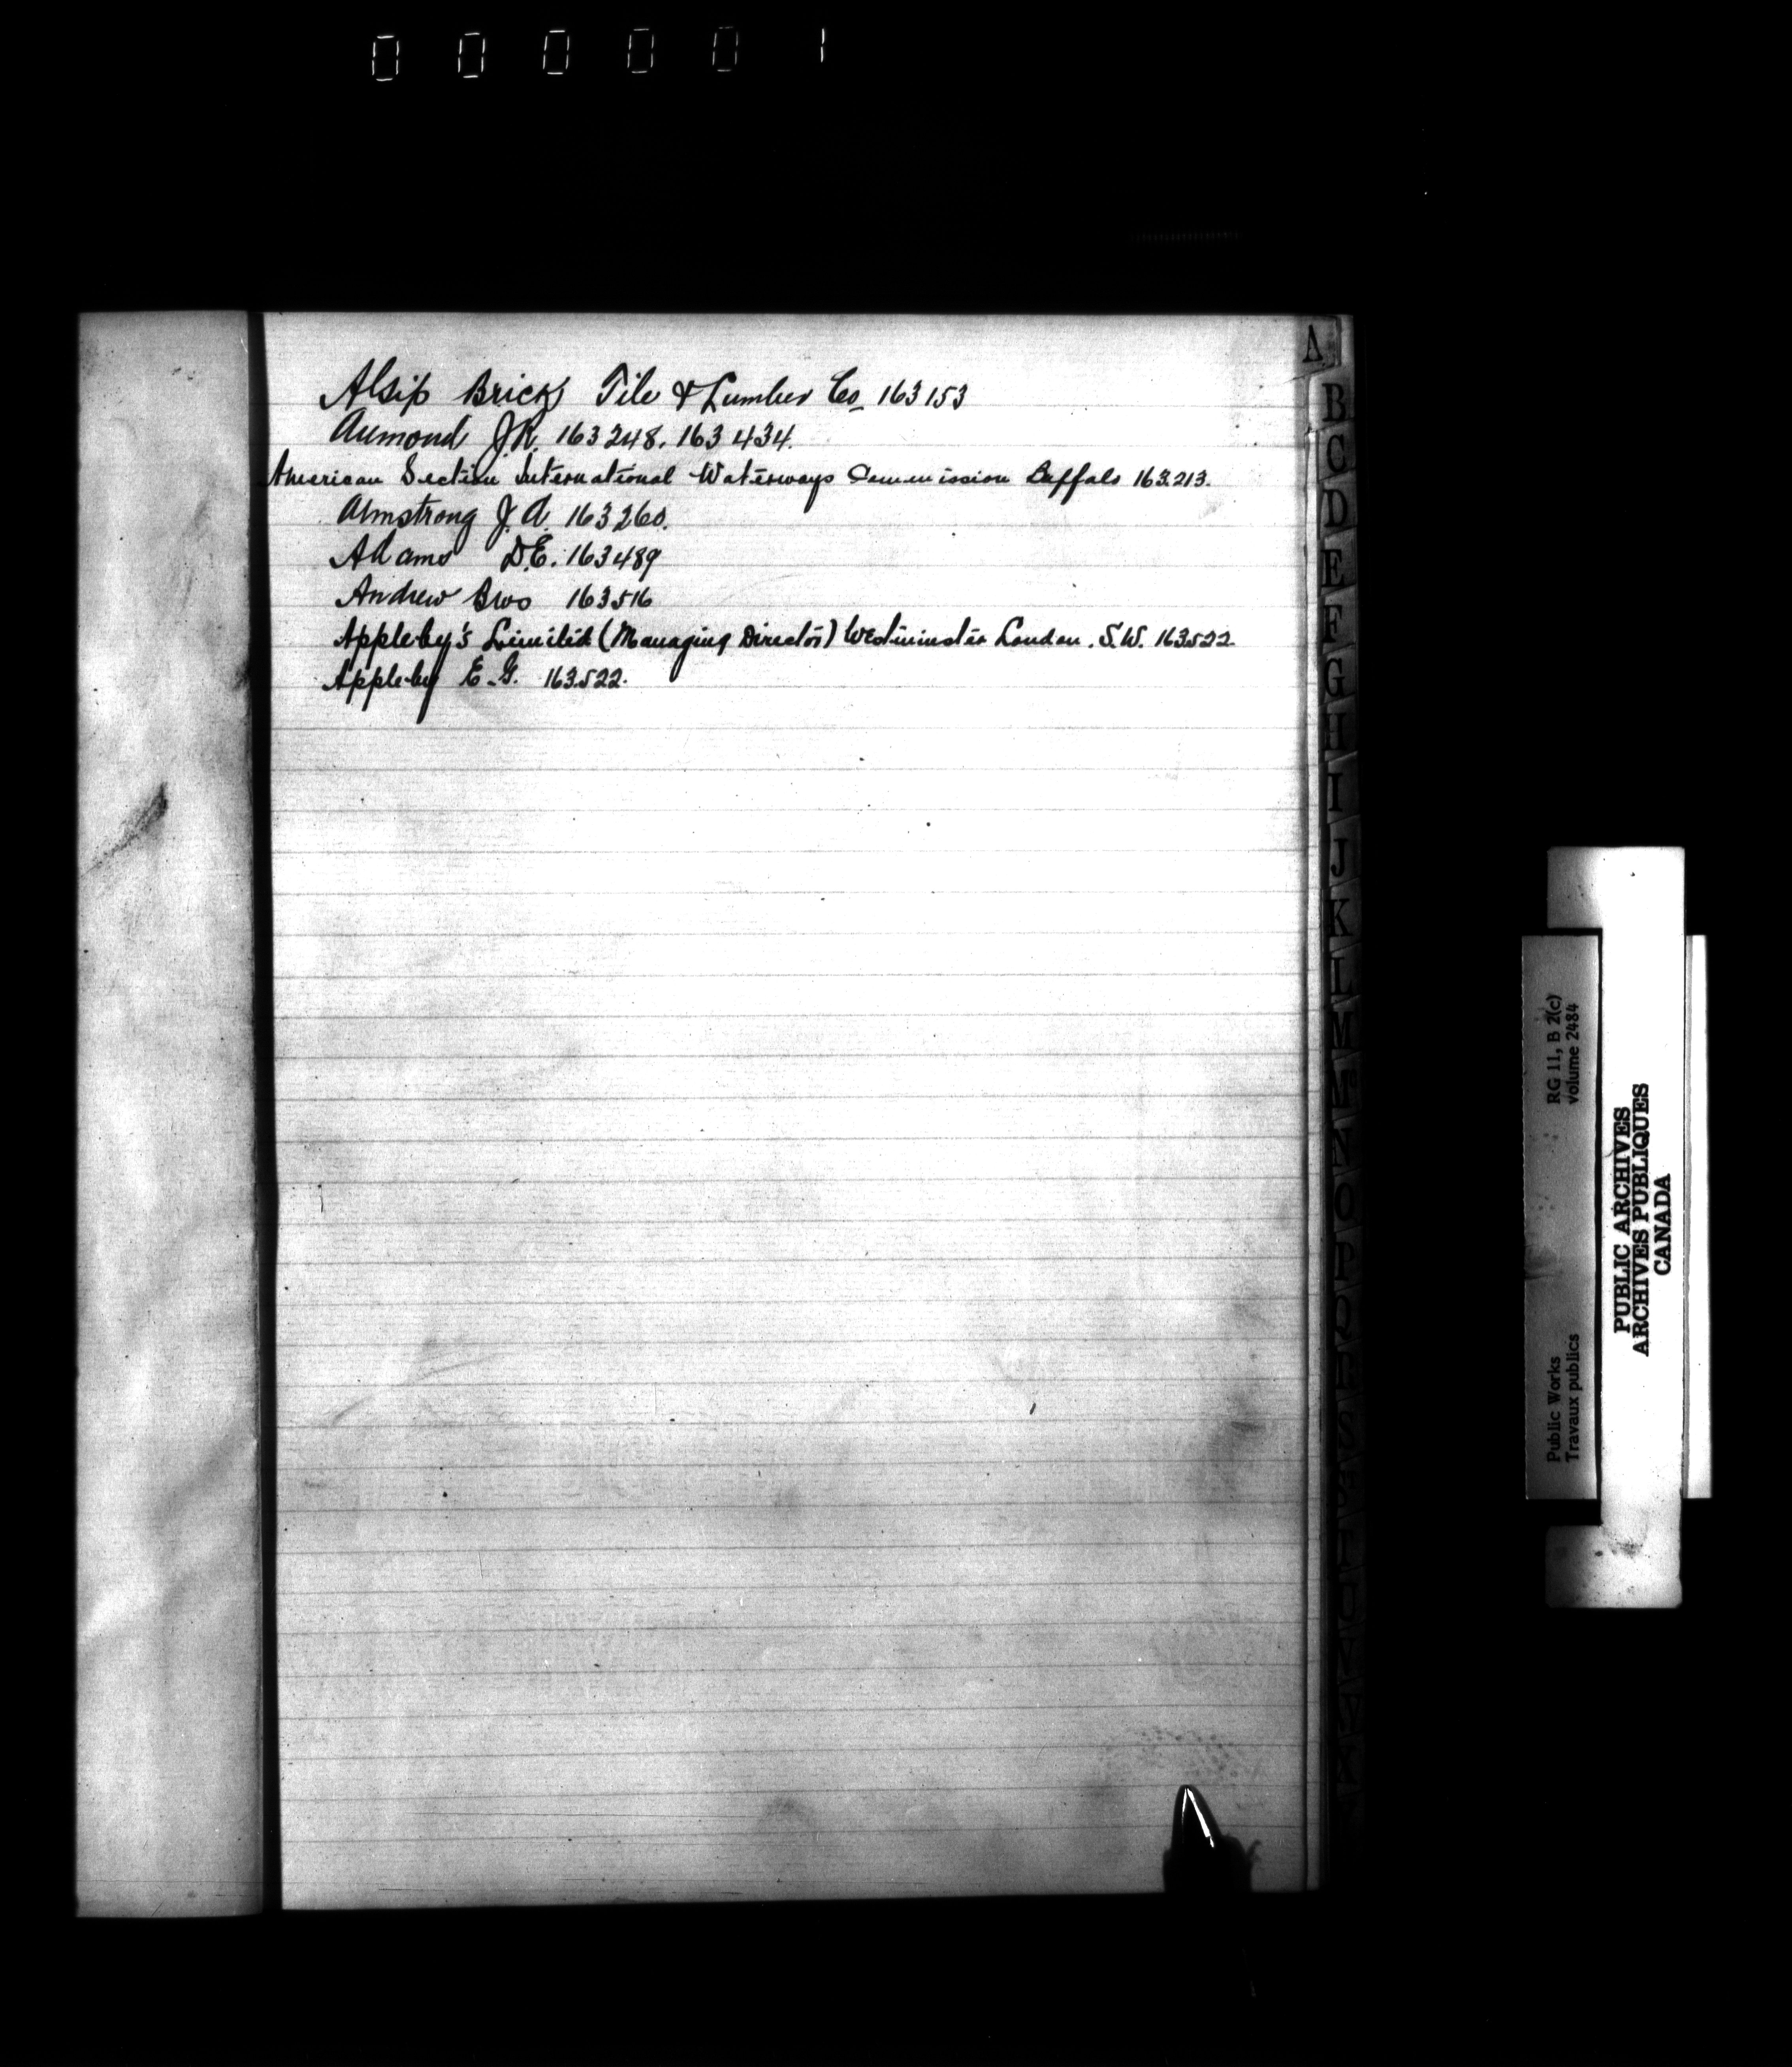 000001
A
Alsip Brick, Tile & Lumber Co 163153
Aumond J.R. 163248. 163434.
American Section International Waterways Commission Buffalo 163213.
Armstrong J.A. 163260.
Adams D.E. 163489
Andrew Bros 163516
Appleby's Limited (Managing Director) Westminster London. S.W. 163522
Appleby E.G. 163522.
B
C
D
E
F
G
H
I
J
K
L
M
N
O
P
Q
R
S
Public Works RG 11, B 2(c)
Travaux publics volume 2484
PUBLIC ARCHIVES
ARCHIVES PUBLIQUES
CANADA